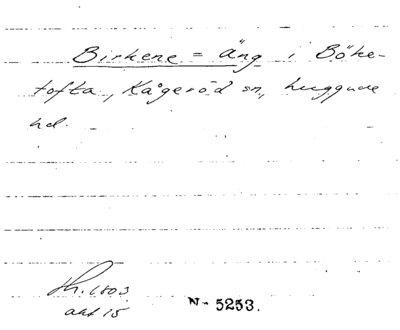 Birkene = äng i Böke-
tofta, Kågeröd sn, Luggude
hd.
Sk. 1803
akt 15
N- 5253.